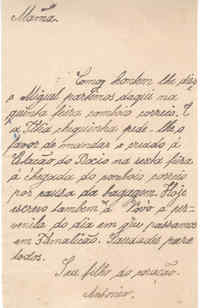 Mamã.
Como hontem lhe disse
o Miguel partimos daqui na
quinta feira comboio correio. E
a Tibia chiquinha pede-lhe o
favor de mandar o criado á
Estação do Rocio na sexta feira
á chegada do comboio correio
por causa da bagagem. Hoje
escrevo tambem á
do dia em que passamos
em Famalicão. Saudades para
todos.
Seu filho do coração
Antonio.